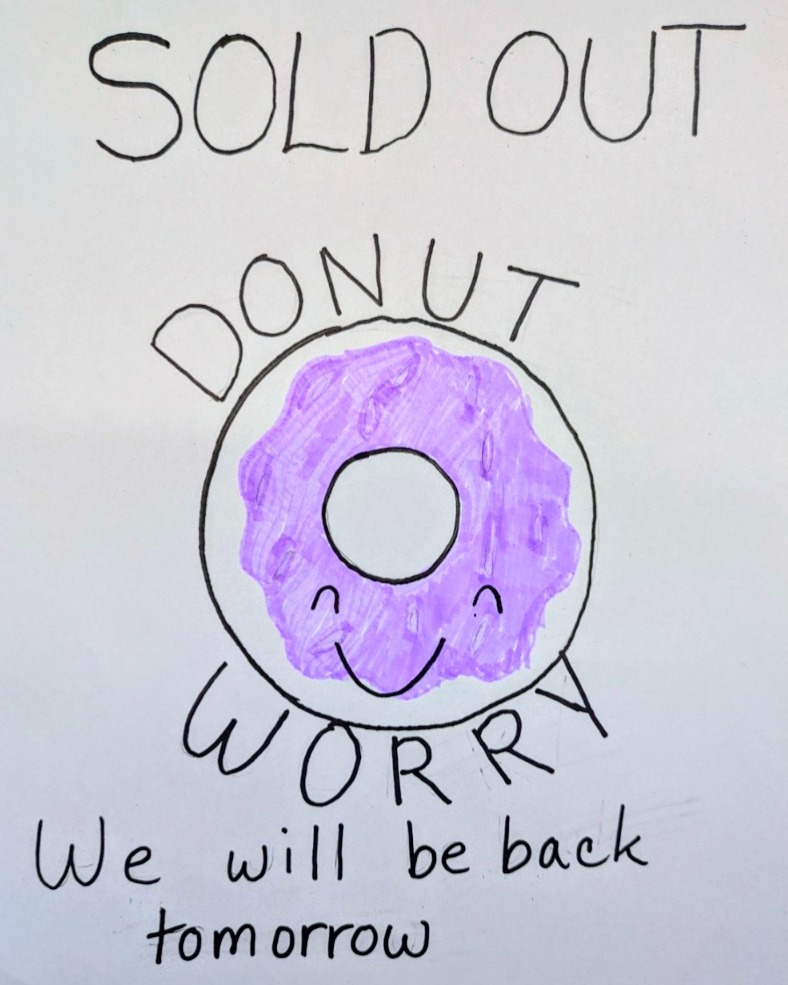 SOLD OUT
DONUT
WORRY
We will be back
tomorrow